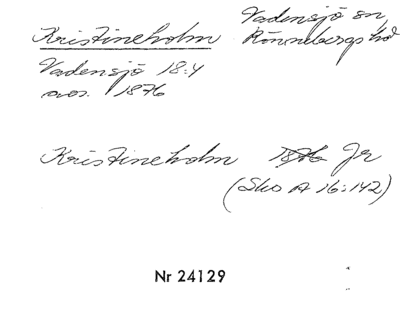 Kristineholm Vadensjö sn,
Rönnebergs hd
Vadensjö 18:4
avs. 1876
Kristineholm 1876 Jr
(Sko A 16:142)
Nr 24129